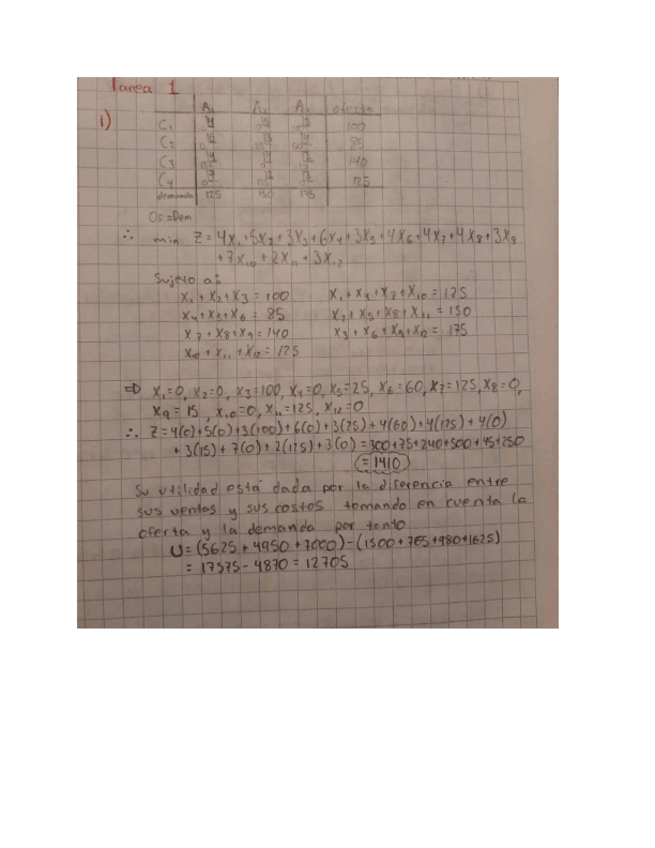 Tarea 1
1)
A₁ A₂ A₃ oferta
C₁ 100
C₂ 85
C₃ 140
C₄ 125
demanda 125 150 175
Of=Dem
∴ min Z=4x₁+5x₂+3x₃+6x₄+3x₅+4x₆+4x₇+4x₈+3x₉
+7x₁₀+2x₁₁+3x₁₂
Sujeto a:
x₁+x₂+x₃=100 x₁+x₄+x₇+x₁₀=125
x₄+x₅+x₆=85 x₂+x₅+x₈+x₁₁=150
x₇+x₈+x₉=140 x₃+x₆+x₉+x₁₂=175
x₁₀+x₁₁+x₁₂=125
⇒ x₁=0, x₂=0, x₃=100, x₄=0, x₅=25, x₆=60, x₇=125, x₈=0,
x₉=15, x₁₀=0, x₁₁=125, x₁₂=0
∴ Z=4(0)+5(0)+3(100)+6(0)+3(25)+4(60)+4(125)+4(0)
+3(15)+7(0)+2(125)+3(0)=300+75+240+500+45+250
=1410
Su utilidad está dada por la diferencia entre
sus ventas y sus costos tomando en cuenta la
oferta y la demanda por tanto
U=(5625+4950+7000)-(1500+765+980+1625)
=17575-4870=12705